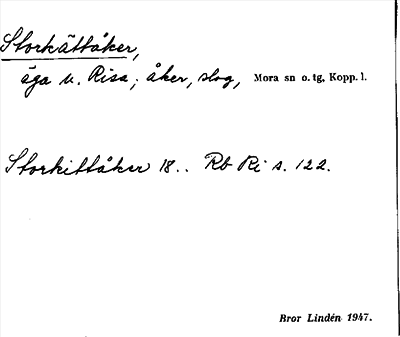 Storkättåker,
äga u. Risa; åker, slog, Mora sn o. tg, Kopp. l.
Storkittåker 18.. Rb Ri s. 122.
Bror Lindén 1947.